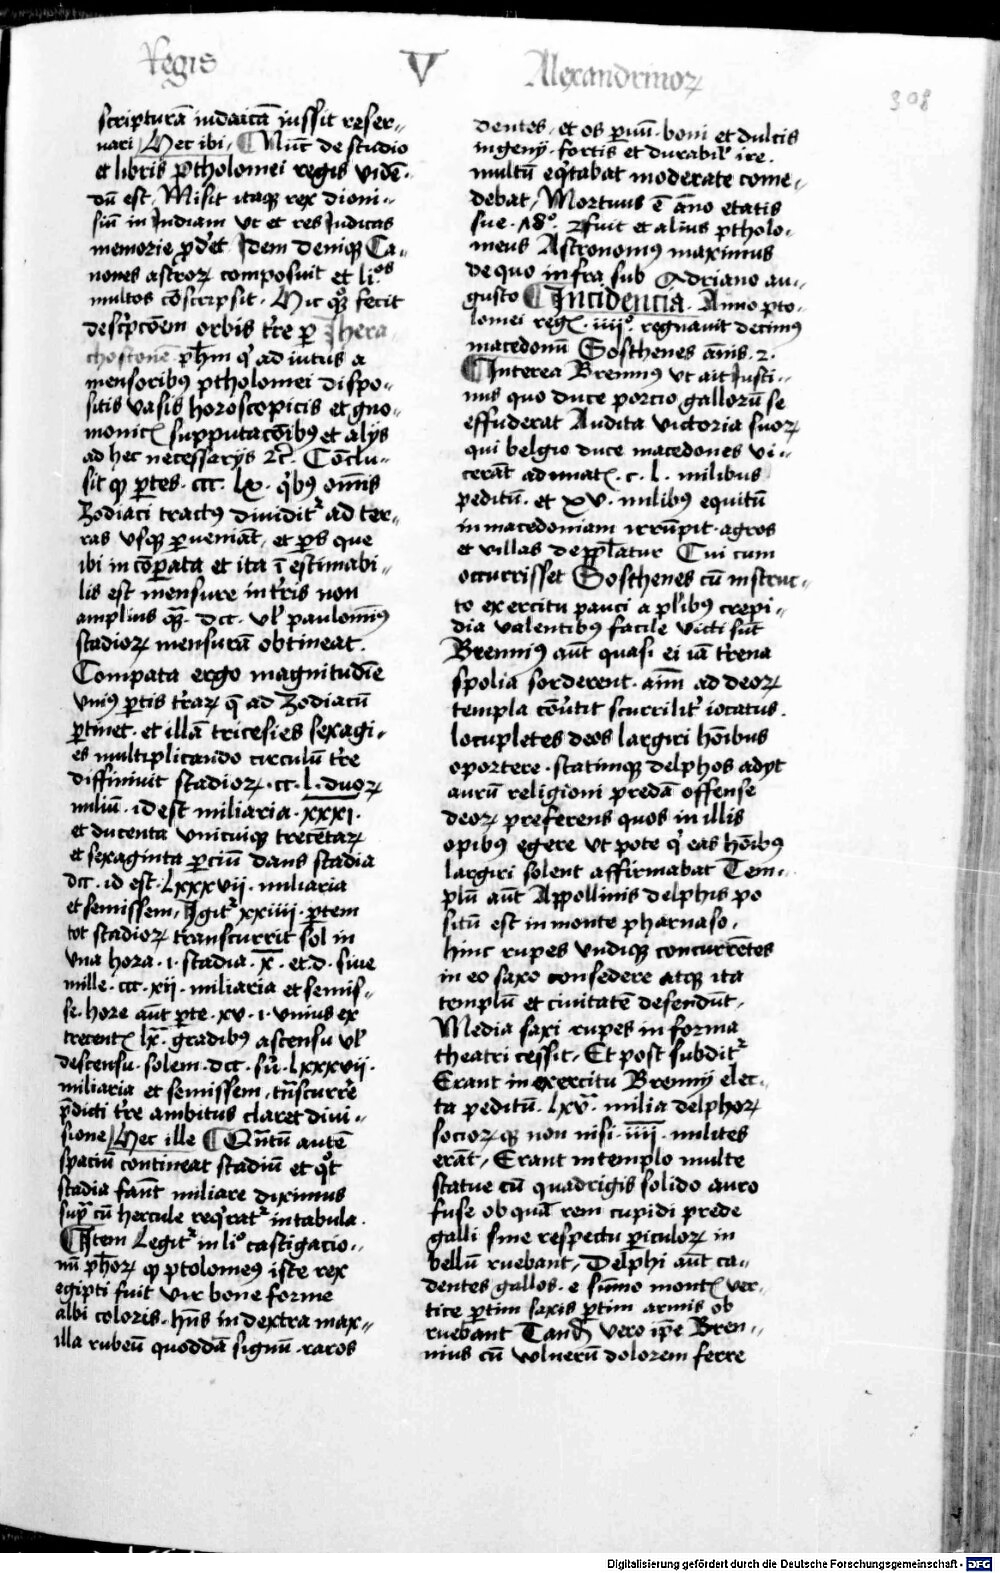 Regis V Alexandrinoꝝ
308
scripturā iudaicā iussit reser„
uari Hec ibi, Nūc de studio
et libris ptholomei regis vidē„
dū est, Misit itaqꝫ rex dioni„
siū in Indiam vt et res Iudicas
memorie ꝓdet Idem deniqꝫ Ca„
nones astroꝝ composuit et li.ᵒˢ
multos cōscripsit. Hic fecit
descͥpcōem orbis tr̄e ꝑ Ihera
chostonē ph̄m qͥ adiutus a
mensoribꝰ ptholomei dispo„
sitis vasis horoscopicis et gno„
monicꝭ supputacōibꝰ et alijs
ad hec necessarijs ⁊c̄. Cōclu„
sit ꝙ ꝑtes. ccc. lx. qͥbꝰ om̄is
Zodiaci tractꝰ diuidit᷑ ad ter„
ras vsqꝫ ꝑueniāt, et ꝑs que
ibi incōꝑata et ita īestimabi„
lis est mensure in tr̄is non
amplius qᷓꝫ. dcc. vl̓ paulominꝰ
stadioꝝ mensurā obtineat.
Compata ergo magnitudīe
vniꝰ ꝑtis tr̄aꝝ q̄ ad Zodiacū
ꝑtinet. et illā tricesies sexagi„
es multiplicando circulū tr̄e
diffiniuit stadioꝝ. cc. l. duoꝝ
miliū. id est miliaria. xxxi.
et ducenta vnicuiqꝫ trecētaꝝ
et sexaginta ꝑciū dans stadia
dcc. id est. lxxxvii. miliaria
et semissem, Igit᷑ xxiiii. ꝑtem
tot stadioꝝ transcurrit sol in
vna hora. i. stadia. x̄. et. d. siue
mille. ccc. xii. miliaria et semis„
se. hore aūt ꝑte. xv. i. vnius ex
trecentꝭ lx. gradibꝰ ascensu vl̓
descensu. solem. dcc. lxxxvii.
miliaria et semissem. tn̄scurre
p̄dicti tr̄e ambitus claret diui„
sione Hec ille Qn̄tū autē
spaciū contineat stadiū et qͦt
stadia faāt miliare diximus
supͣ cū hercule reqͥrat᷑ in tabula.
Item Legit᷑ in liͦ castigacio„
nū ph̄oꝝ ꝙ ptolomeꝰ iste rex
egipti fuit vir bone forme
albi coloris. hn̄s in dextra max„
illa rubeū quoddā signū. raros
dentes. et os ꝑuū. boni et dulcis
ingenij. fortis et durabil̓ ire.
multū eqͥtabat moderate come„
debat, Mortuus ē āno etatis
sue. 78ͦ. ⁊ fuit et alius ptholo„
meus Astronomꝰ maximus
de quo infra sub Adriano au„
gusto Incidencia. Anno pto„
lomei regꝭ. iiiiͦ. regnauit decimꝰ
macedonū Sosthenes ānis. 2.
Interea Brennꝰ vt ait Iusti„
nus quo duce porcio galloꝝ se
effuderat Audita victoria suoꝝ
qui belgio duce macedones vi„
cerāt adunatꝭ. c. l. milibus
peditū. et xv. milibꝰ equitū
in macedoniam irrūpit. agros
et villas deppl̄atur Cui cum
occurrisset Sosthenes cū instruc„
to exercitu pauci a pl̓ibꝰ crepi„
dia valentibꝰ facile victi sūt
Brennꝰ aūt quasi ei iā tr̄ena
spolia sorderent. aīm ad deoꝝ
templa cōu̓tit scurrilit̓ iocatus.
locupletes deos largiri hōibus
oportere. statimqꝫ delphos adyt
aurū religioni predā offense
deoꝝ preferens quos in illis
opibꝰ egere vt pote qͥ eas hōibꝰ
largiri solent affirmabat Tem„
plū aūt Appollinis delphis po
situ est in monte pharnaso.
hinc rupes vndiqꝫ concurrētes
in eo saxo consedere atqꝫ ita
templū et ciuitatē defendūt,
Media saxi rupes in forma
theatri cessit, Et post subdit᷑
Erant in exercitu Brennij elec„
ta peditū. lxv. milia delphoꝝ
socioꝝqꝫ non nisi. iiii. milites
erāt, Erant in templo multe
statue cū quadrigis solido auro
fuse ob quā rem cupidi prede
galli sine respectu ꝑiculoꝝ in
bellū ruebant, Delphi aūt ca„
dentes gallos. e sūmo montꝭ ver„
tice ꝑtim saxis ꝑtim armis ob
ruebant Tandē vero ip̄e Bren„
nius cū vulnerū dolorem ferre
Digitalisierung gefördert durch die Deutsche Forschungsgemeinschaft - DFG